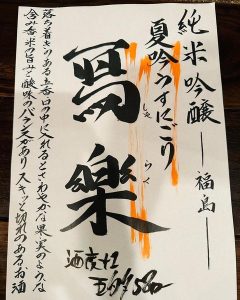 純米吟醸―福島―
夏吟うすにごり
寫樂
しゃ
らく
酒度+1
落ち着きのある立香口の中に入れるとさわやかな果実のような
含み香米の旨みと酸味のバランスがありスキッと切れのあるお酒